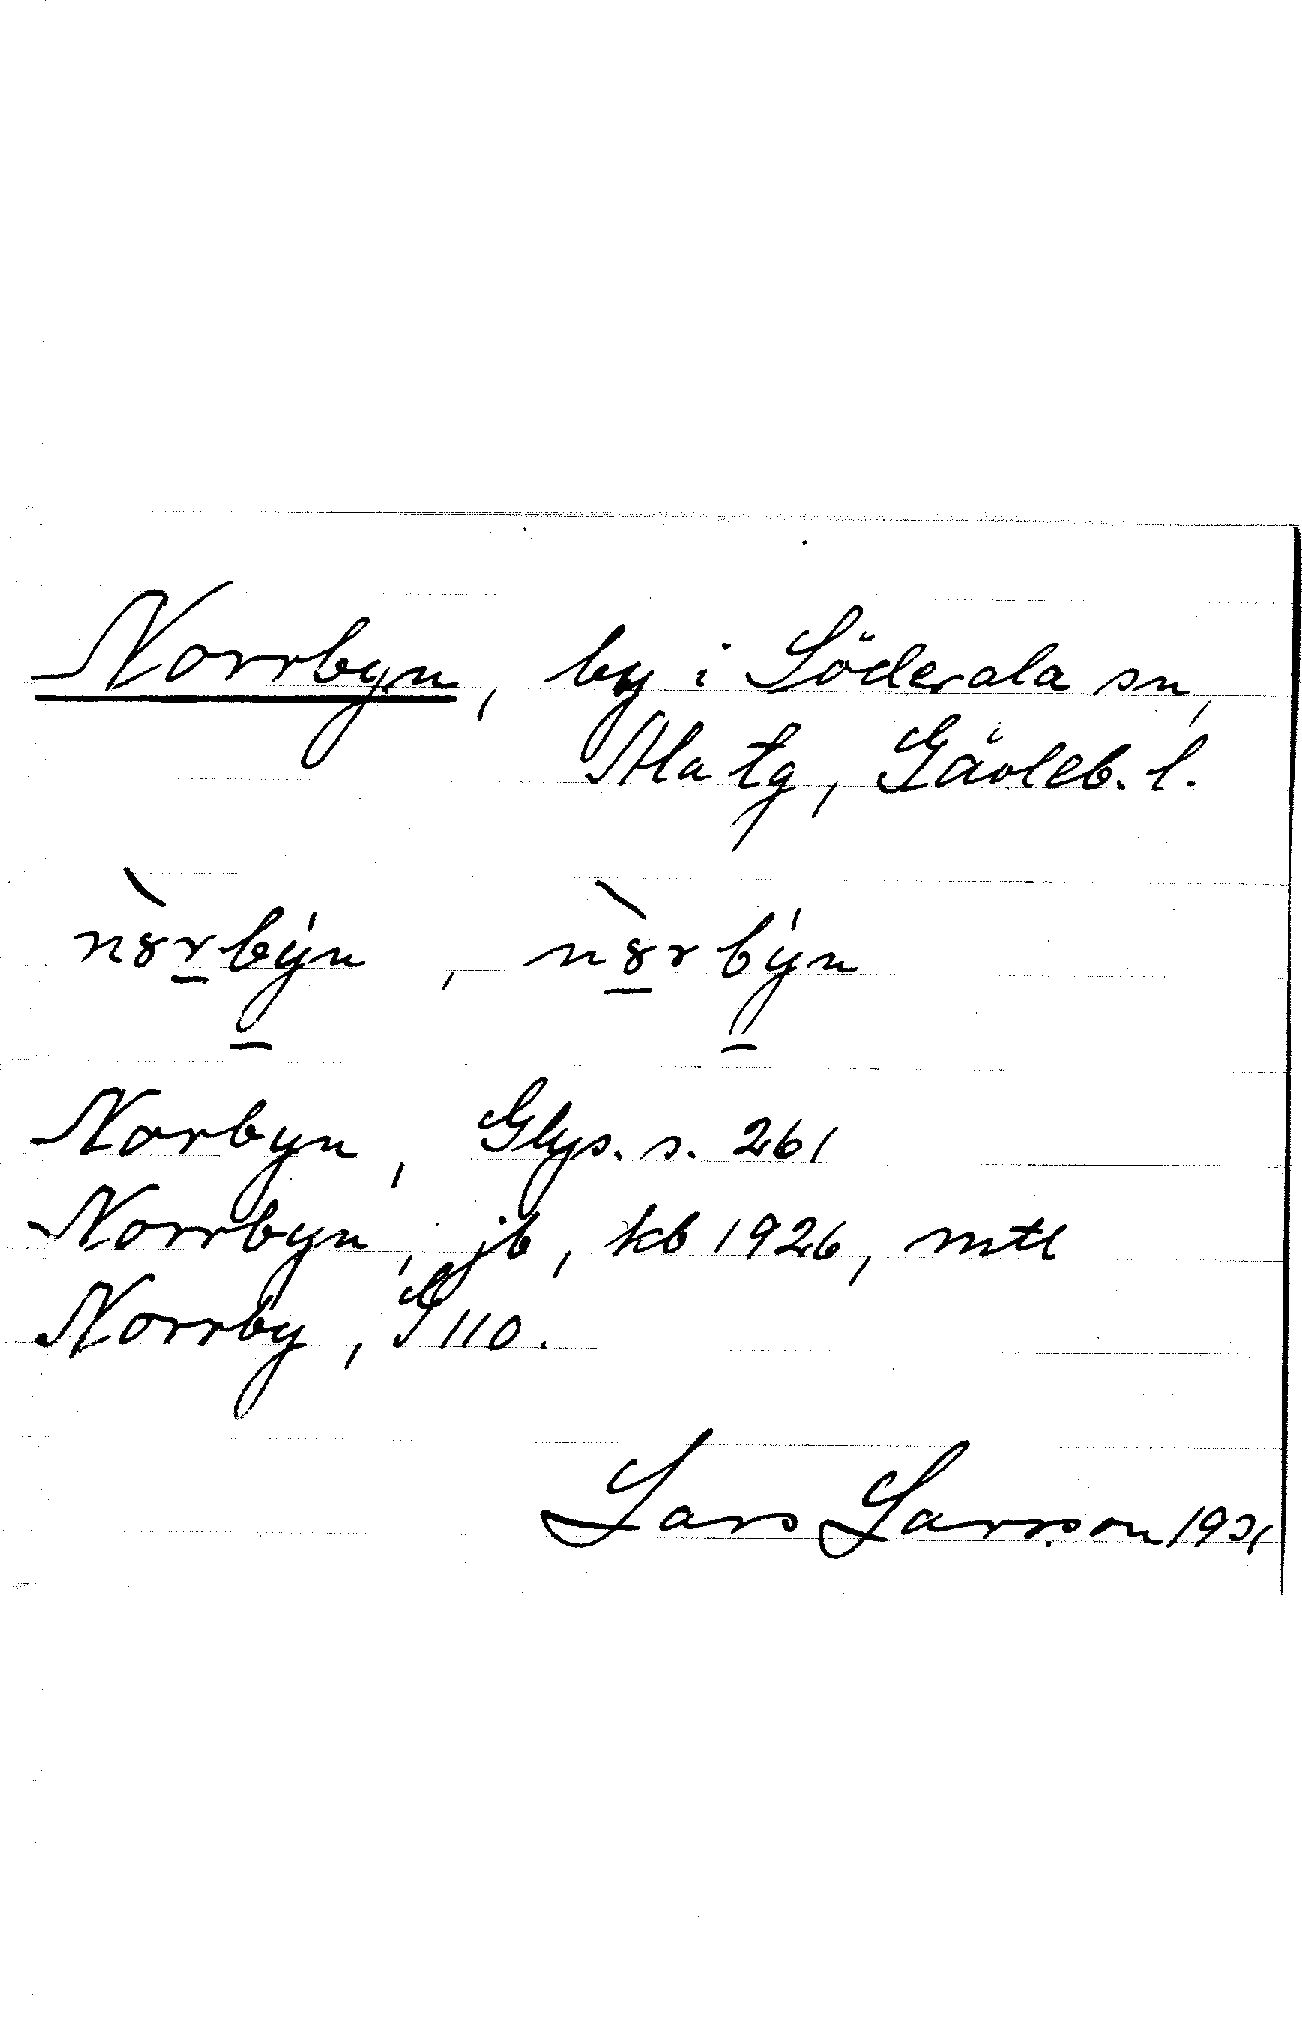 Norrbyn, by i Söderala sn,
Ala tg, Gävleb. l.
nȣ̀rbýn, nȣ̀rbýn
Norbyn, Glys. s. 261
Norrbyn, jb, kb 1926, mtl
Norrby, G 110.
Lars Larsson 1931